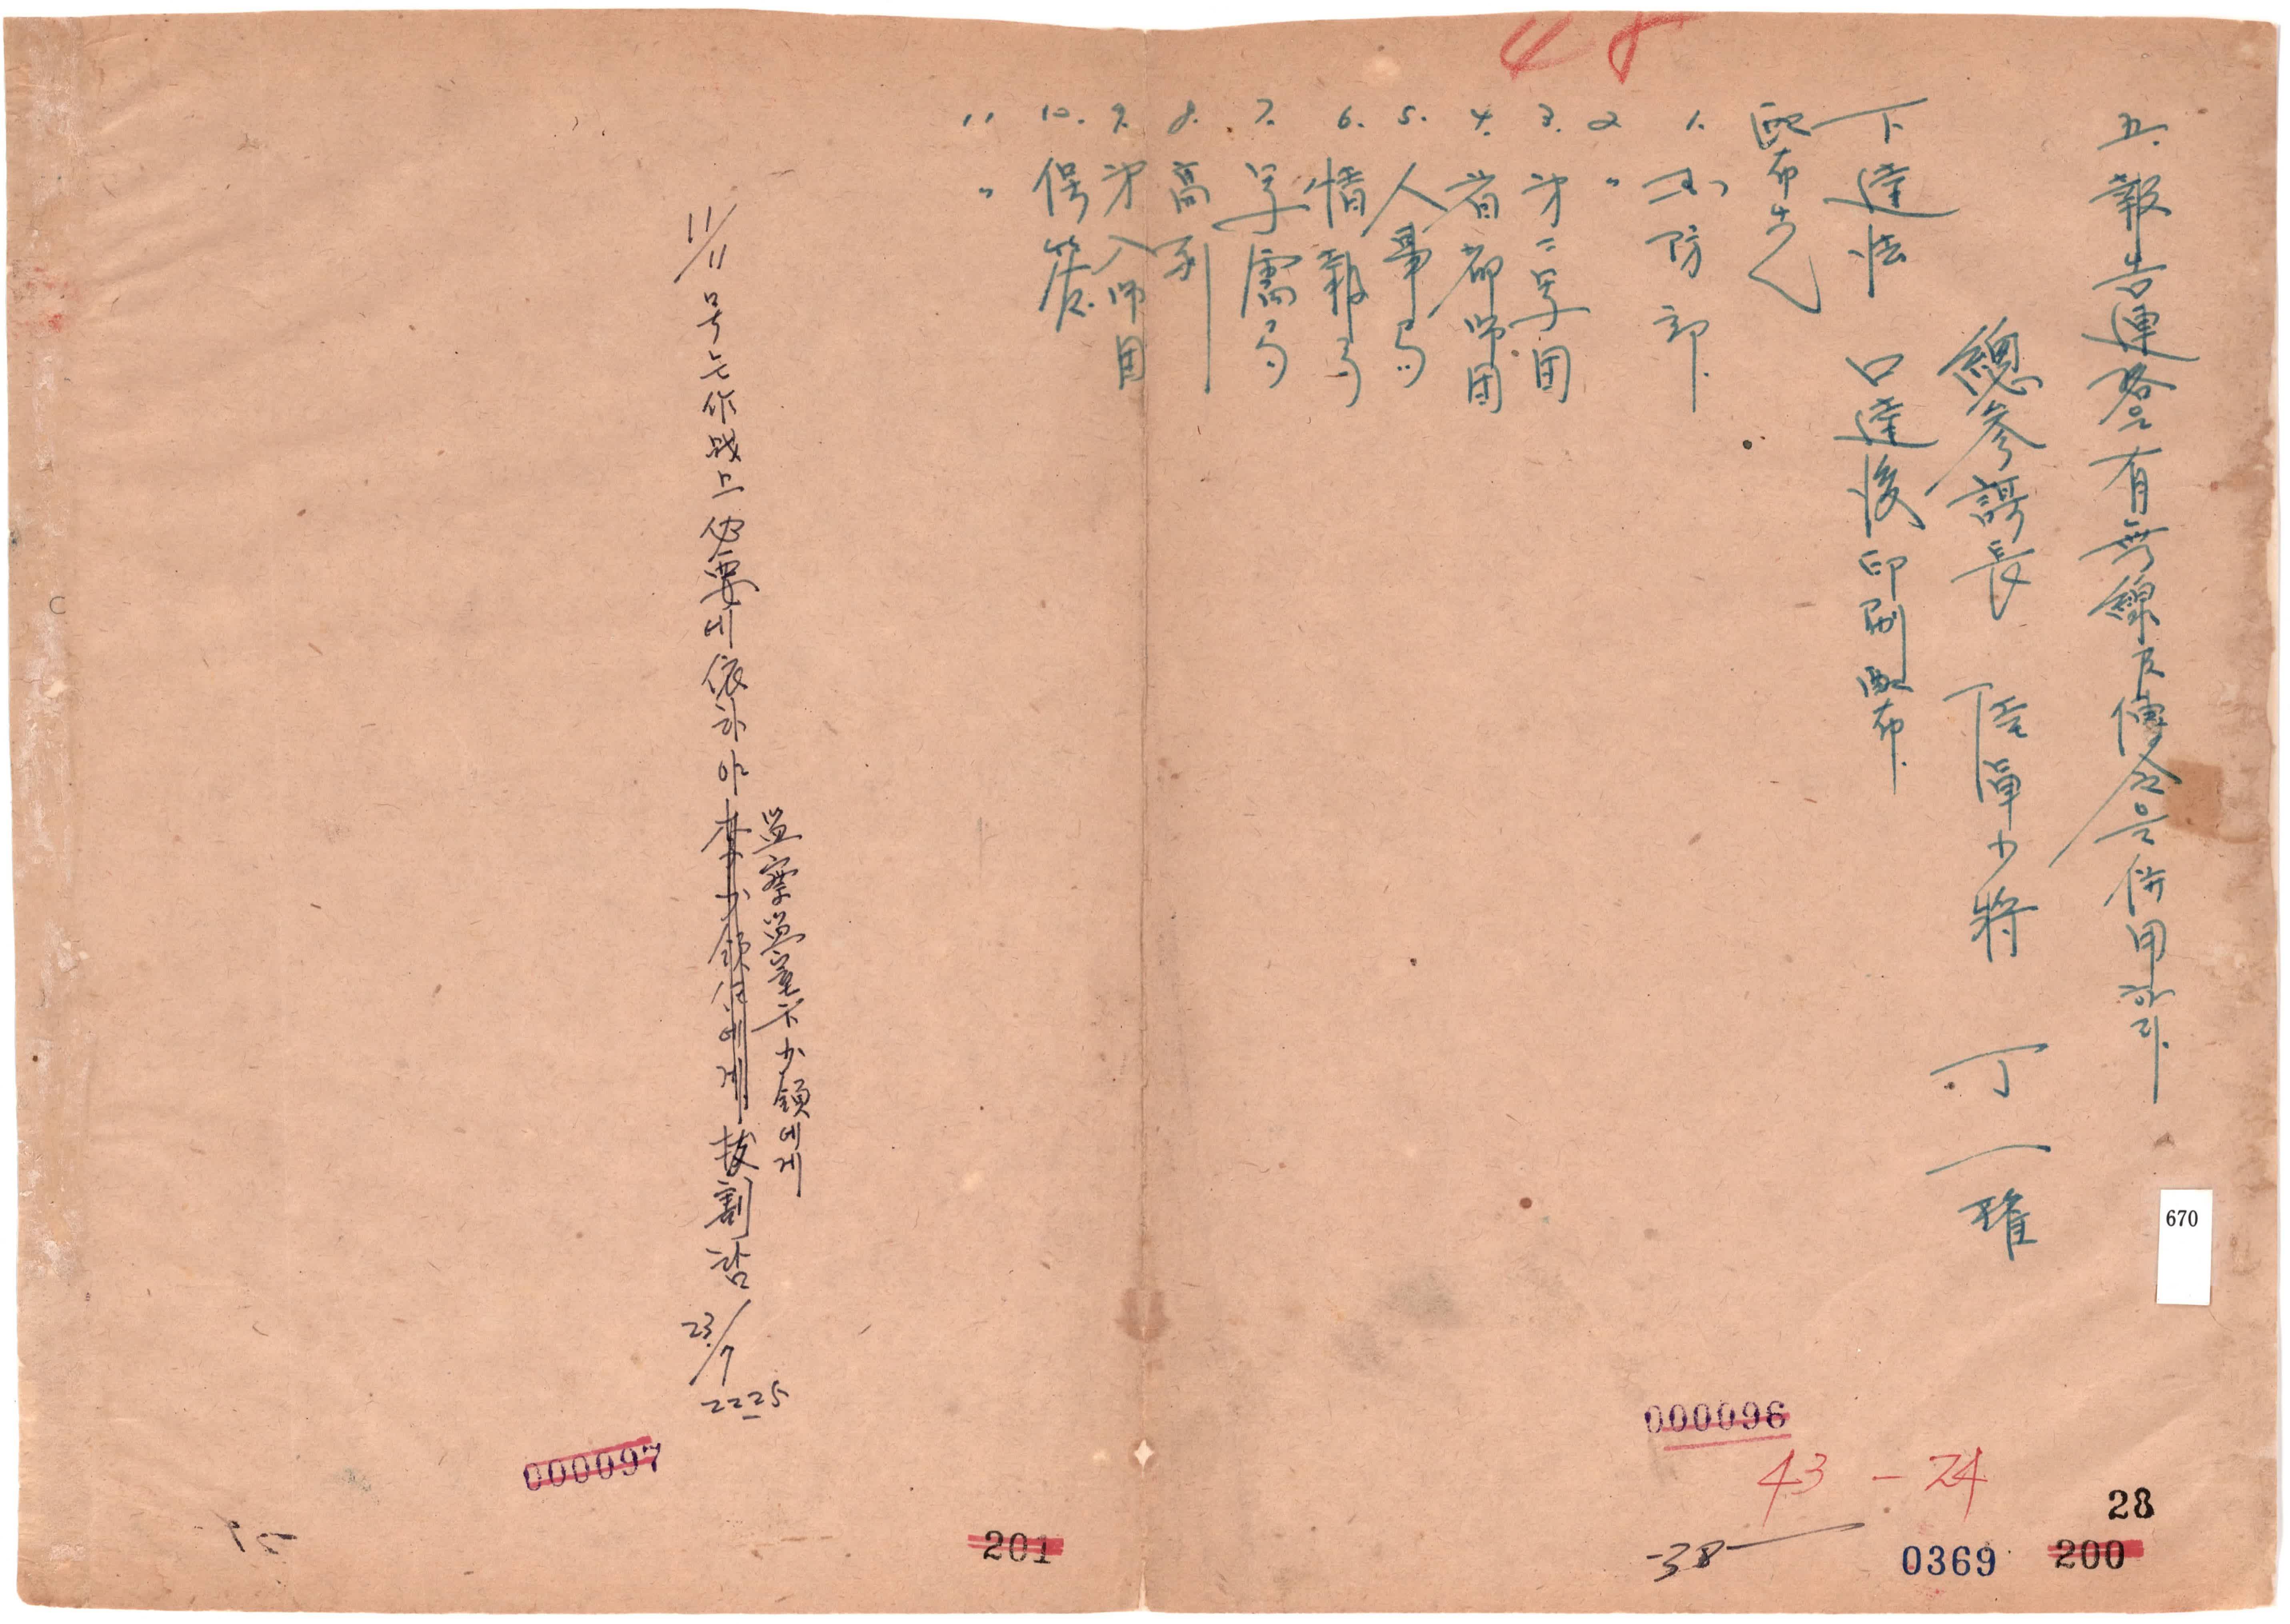 48
五. 報告連絡은 有無線及傳令을 倂用하라.
總參謀長 陸軍少將 丁一權
下達法 口達後印刷配布.
配布先
1. 국防部.
2 〃
3. 第二軍団
4. 首都師団
5. 人事局
6. 情報局
7. 軍需局
8. 高利
9. 第八師団
10. 保管.
11 〃
11/11 号는 作戰上 必要에 依하야 李少領에게 拔割함 23/7 2225
監察監室 卞少領에게
670
000096
43 - 74
28
-38-
0369
200
000097
201